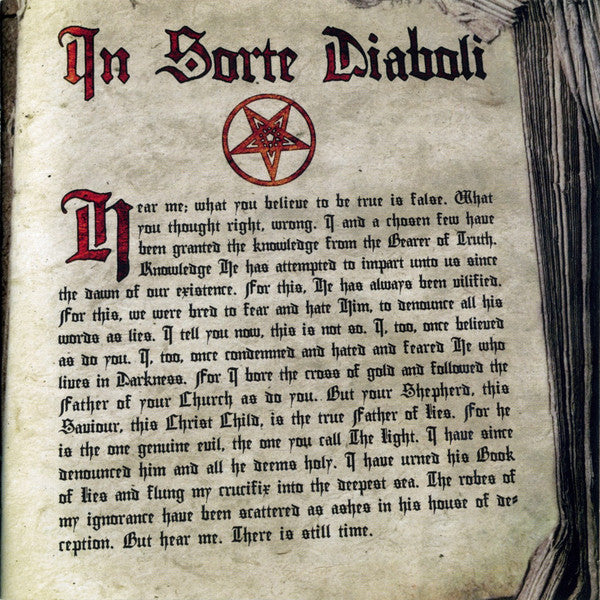 In Sorte Diaboli
Hear me; what you believe to be true is false. What
you thought right, wrong. I and a chosen few have
been granted the knowledge from the Bearer of Truth.
Knowledge He has attempted to impart unto us since
the dawn of our existence. For this, He has always been vilified.
For this, we were bred to fear and hate Him, to denounce all his
words as lies. I tell you now, this is not so. I, too, once believed
as do you. I, too, once condemned and hated and feared He who
lives in Darkness. For I bore the cross of gold and followed the
Father of your Church as do you. But your Shepherd, this
Saviour, this Christ Child, is the true Father of Lies. For he
is the one genuine evil, the one you call The Light. I have since
denounced him and all he deems holy. I have urned his Book
of Lies and flung my crucifix into the deepest sea. The robes of
my ignorance have been scattered as ashes in his house of de-
ception. But hear me. There is still time.